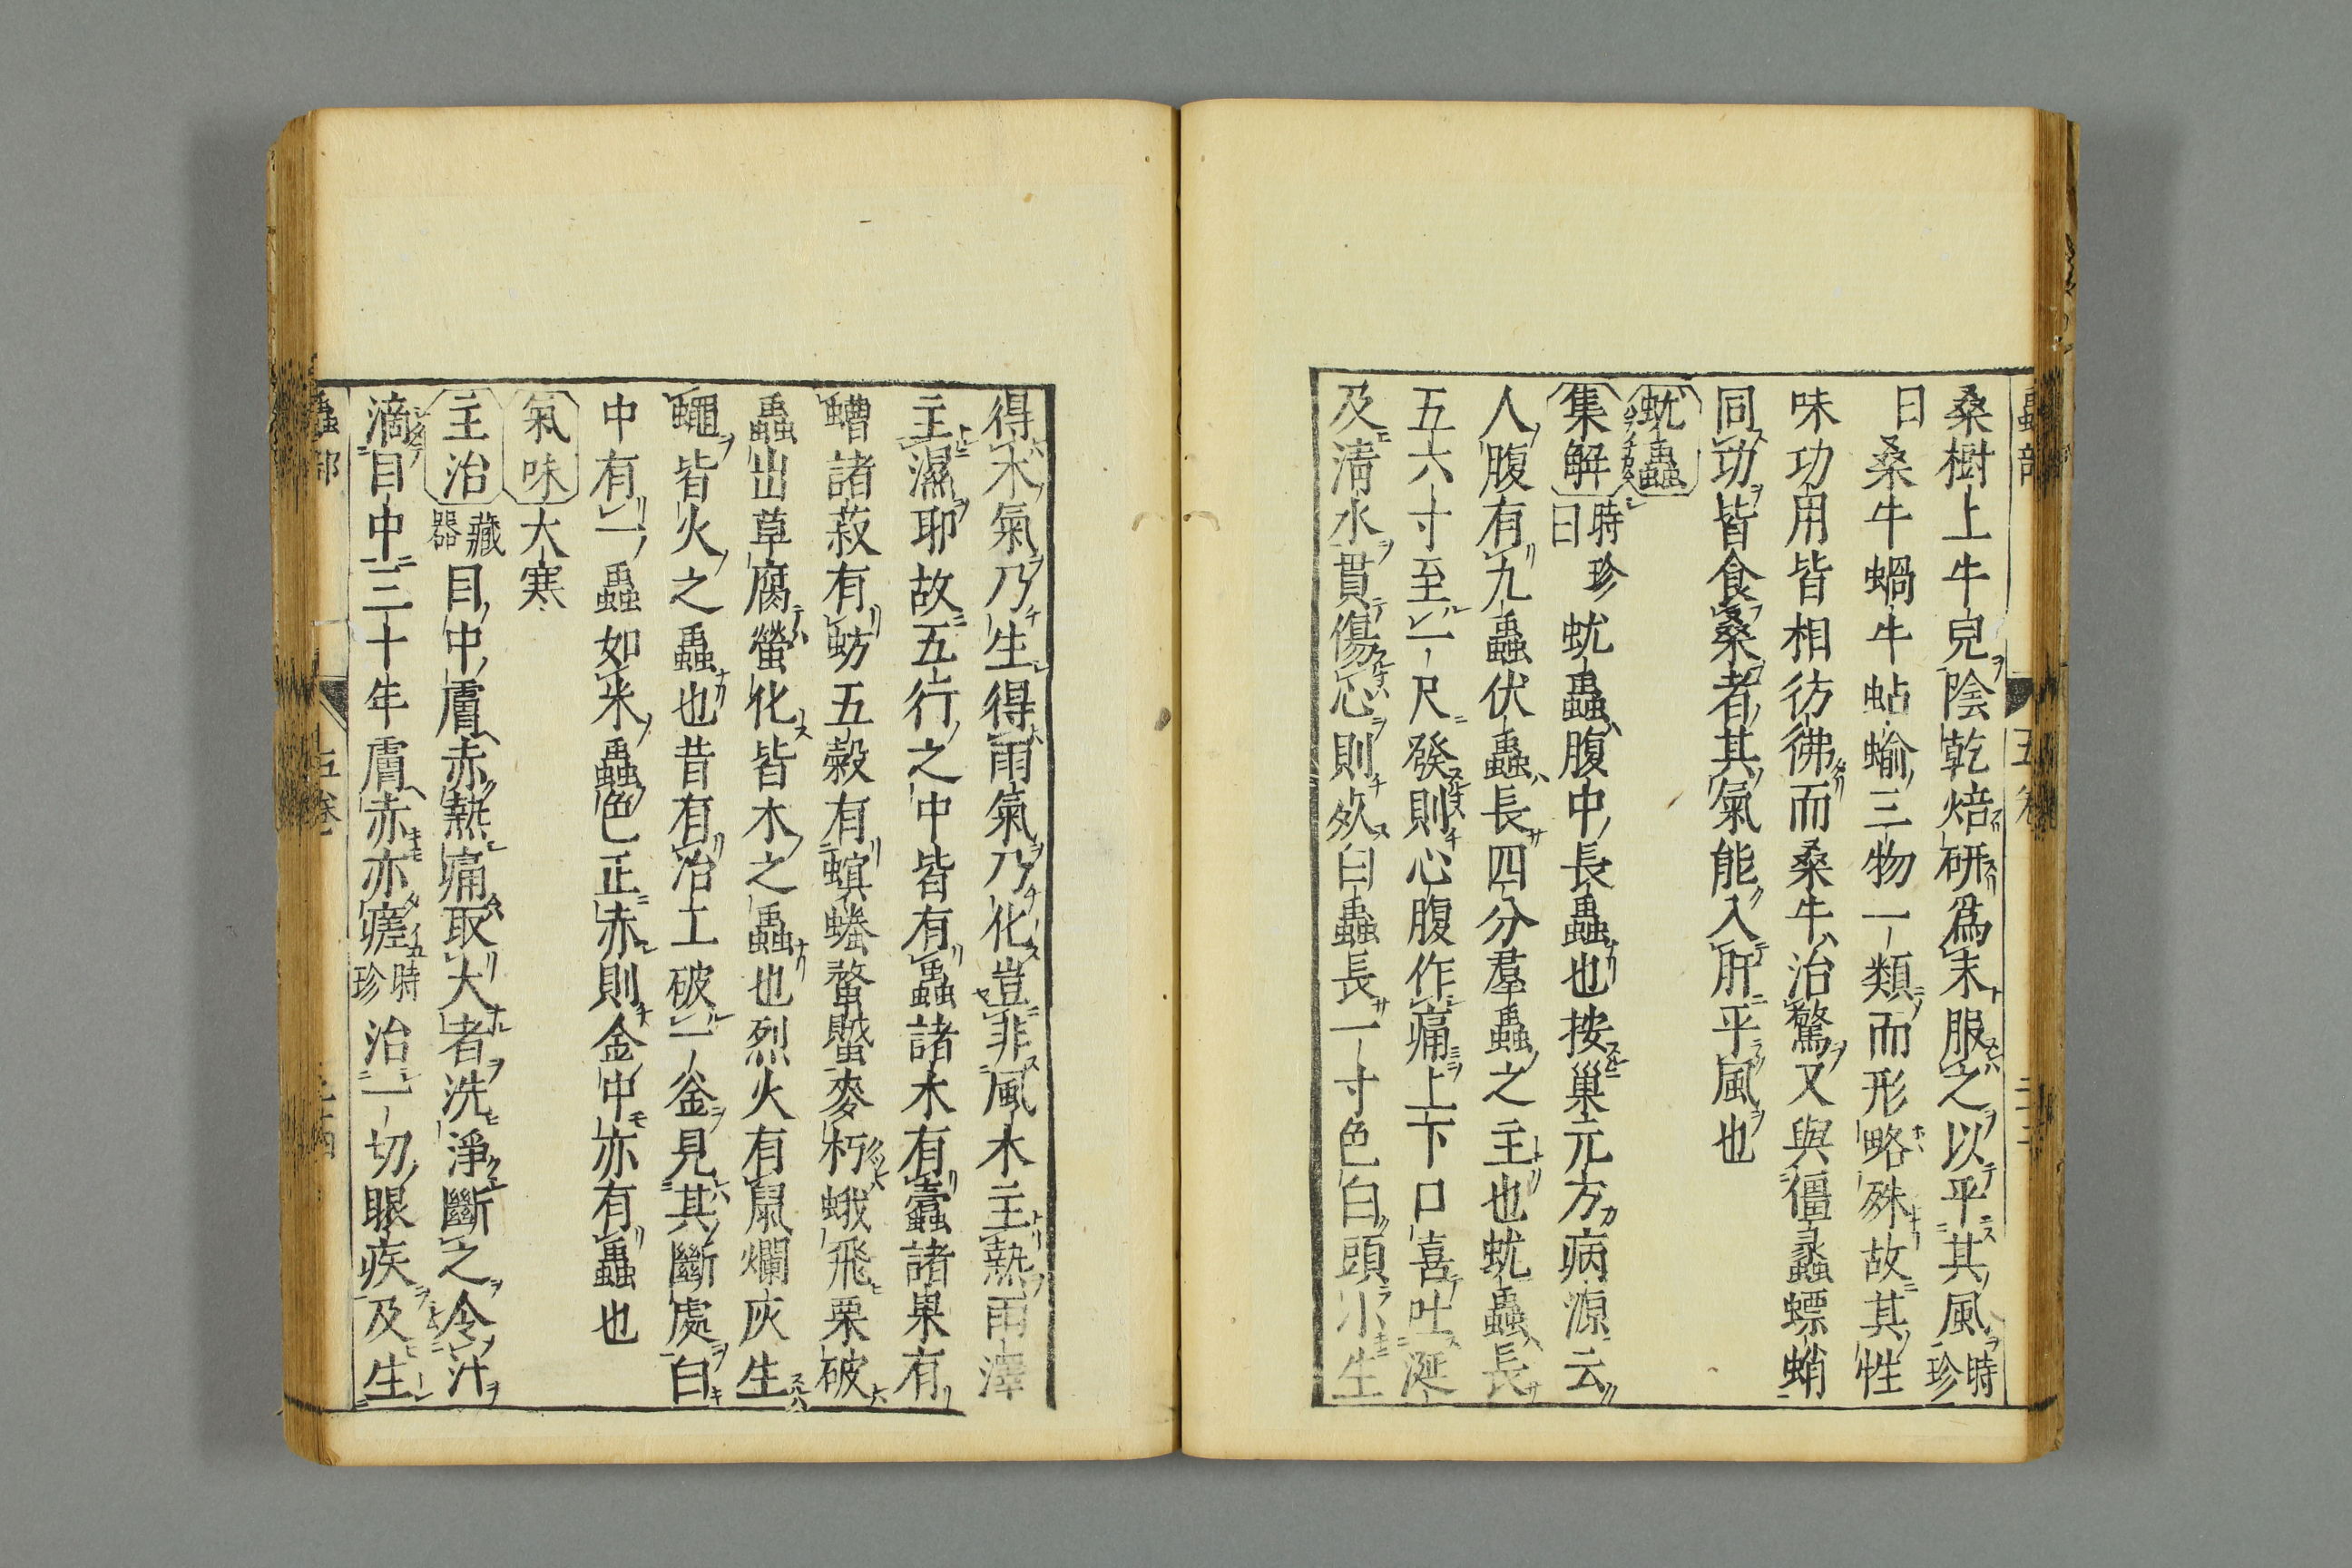 桑樹上牛皃陰乾焙研爲末服之以平其風時珍
曰桑牛蝸牛蛅蝓三物一類而形略殊故其性
味功用皆相彷彿而桑牛治驚又與殭蠶螵蛸
同功皆食桑者其氣能入肝平風也
蚘蟲
集解時珍曰蚘蟲腹中長蟲也按巢元方病源云
人腹有九蟲伏蟲長四分羣蟲之主也蚘蟲長
五六寸至一尺發則心腹作痛上下口喜吐涎
及淸水貫傷心則死白蟲長一寸色白頭小生
得木氣乃生得雨氣乃化豈非風木主熱雨澤
主濕耶故五行之中皆有蟲諸木有蠹諸果有
螬諸菽有蚄五穀有螟螣蝥蠈麥朽蛾飛栗破
蟲出草腐螢化皆木之蟲也烈火有鼠爛灰生
蠅皆火之蟲也昔有冶工破一釜見其斷處白
中有一蟲如米蟲色正赤則金中亦有蟲也
氣味大寒
主治藏器目中膚赤熱痛取大者洗淨斷之令汁
滴目中三十年膚赤亦瘥時珍治一切眼疾及生
蟲部 五卷